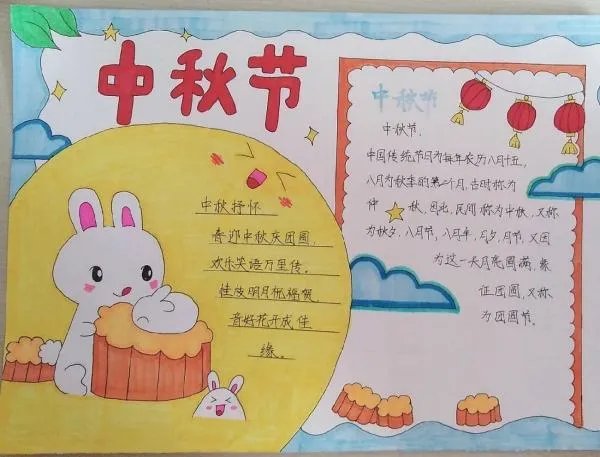 中秋节
中秋抒怀
喜迎中秋庆团圆,
欢乐笑语万里传。
桂皮明月祝福贺,
音好花开成佳
缘。
中秋节
中秋节,
中国传统节日为每年农历八月十五,
八月为秋季的第二个月,古时称为
仲秋,因此,民间称为中秋,又称
为秋夕,八月节,八月半,月夕,月节,又因
为这一天月亮圆满,象
征团圆,又称
为团圆节。